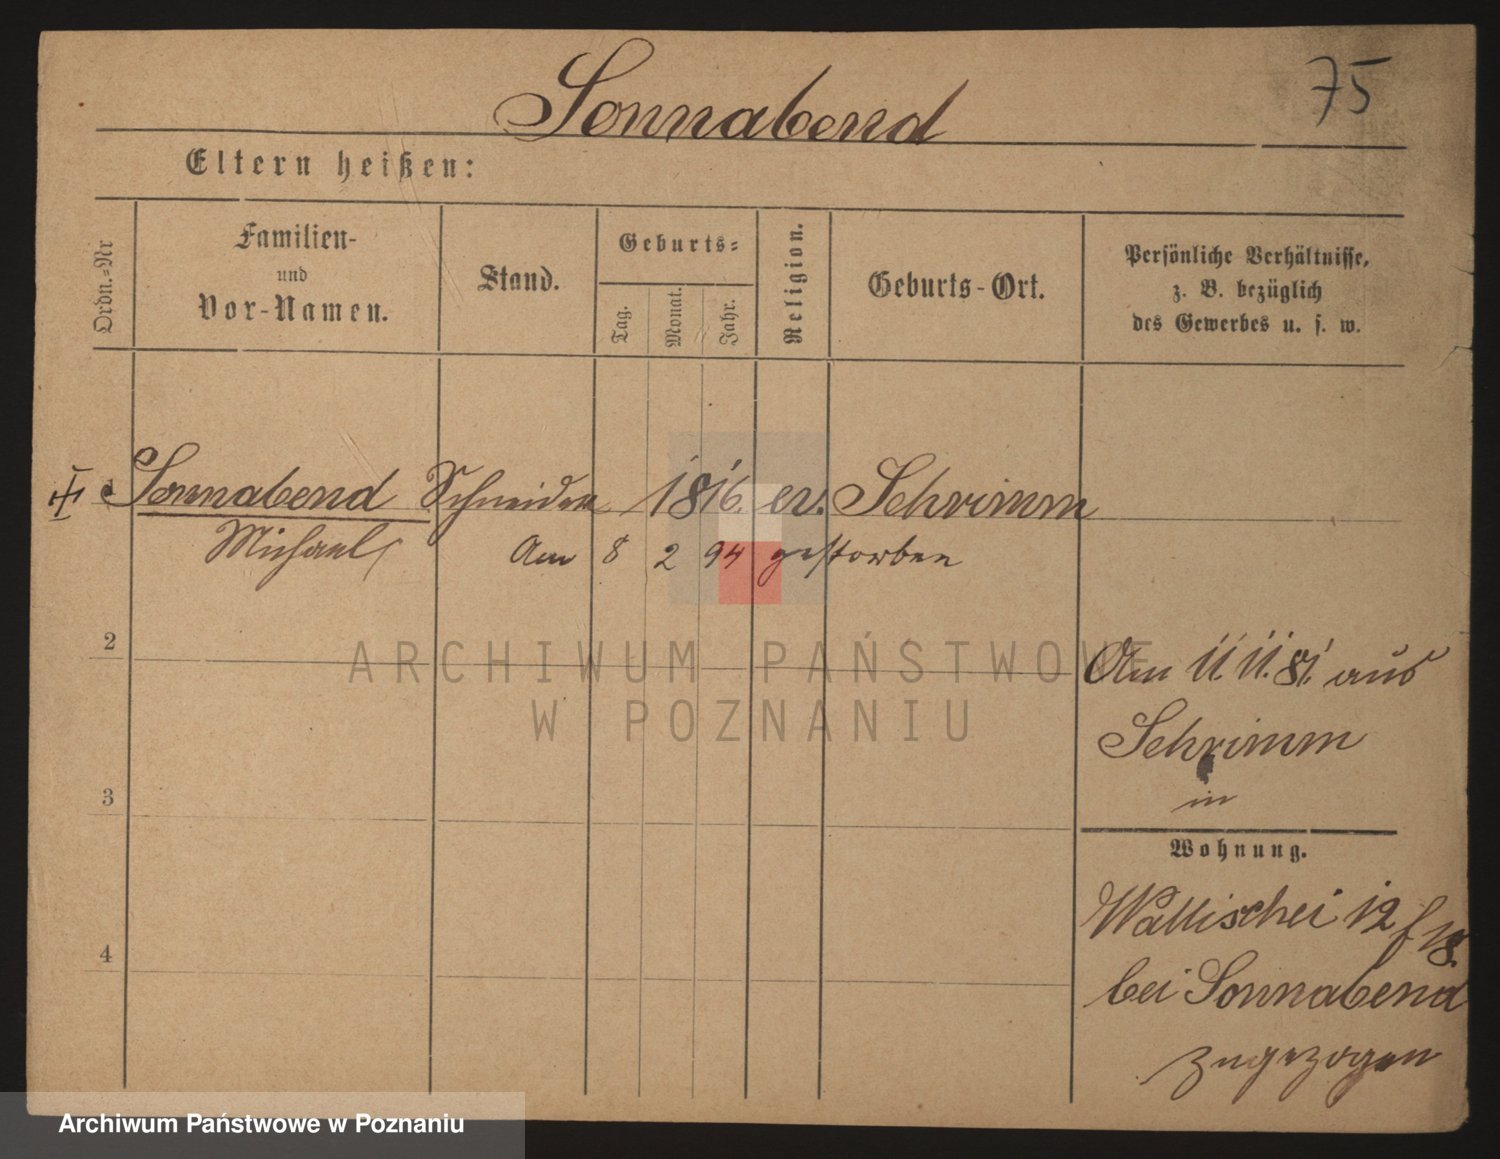 Sonnabend
75
Eltern heißen:
Ordn.-Nr
Familien-
und
Vor-Namen.
Stand.
Geburts-
Tag.
Monat.
Jahr.
Religion.
Geburts-Ort.
Persönliche Verhältnisse,
z. B. bezüglich
des Gewerbes u. s. w.
1 Sonnabend Schneider 1816. ev. Schrimm
Michael
Am 8 2 94 gestorben
2
Am 11. 11. 81. aus
Schrimm
3
in
Wohnung.
Wallischei 12
4
bei Sonnabend
zugezogen
ARCHIWUM PAŃSTWOWE
W POZNANIU
Archiwum Państwowe w Poznaniu